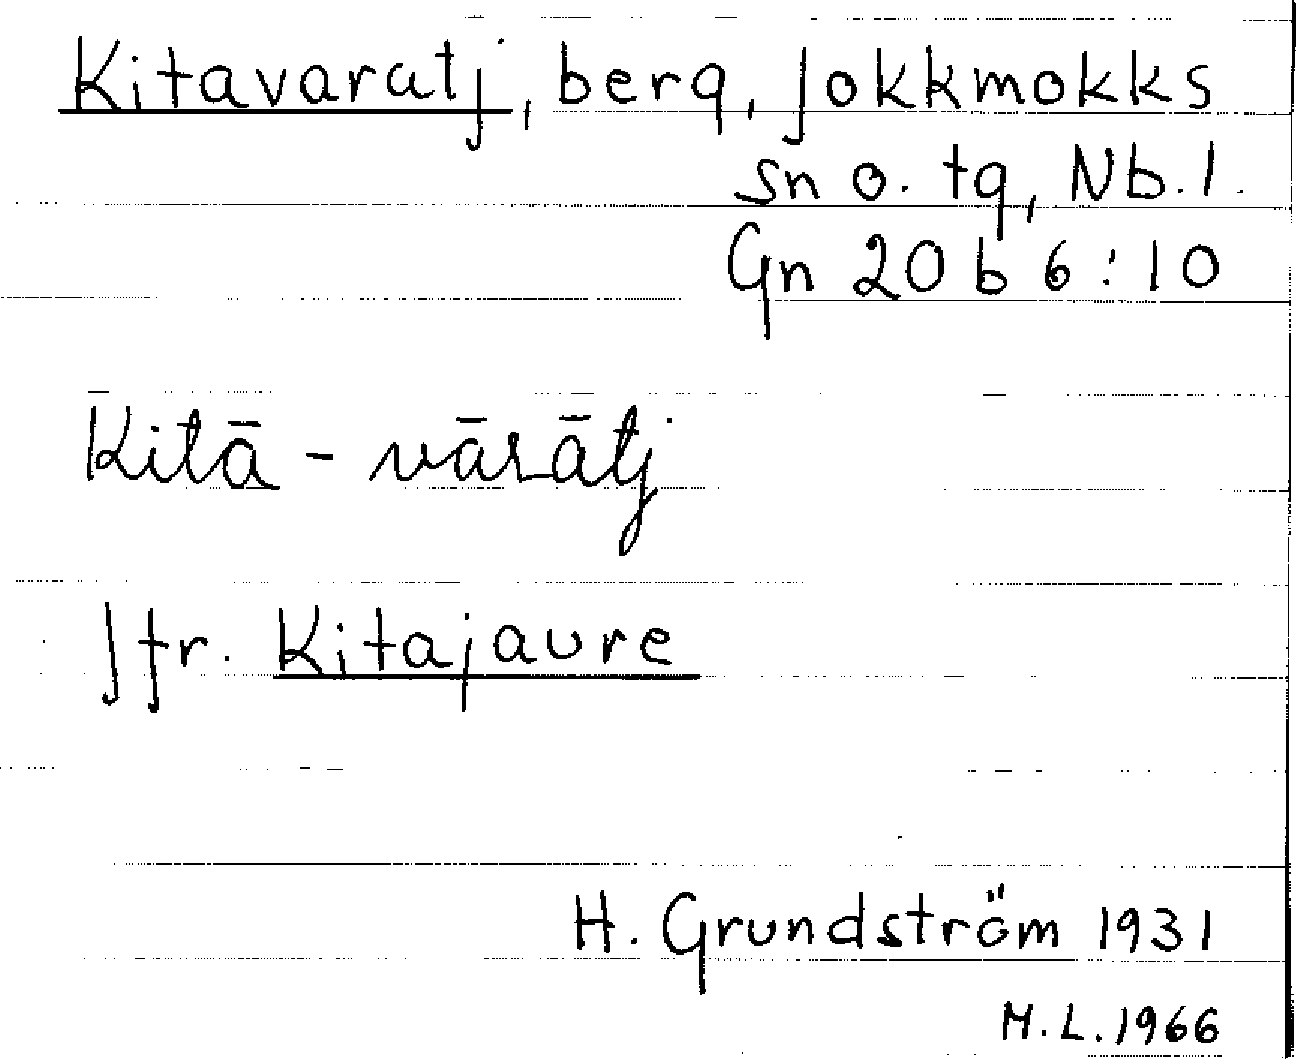 Kitavaratj, berg, Jokkmokks
sn o. tg, Nb.l.
Gn 20 b 6:10
Kitā - vārātj
Jfr. Kitajaure
H. Grundström 1931
M.L. 1966